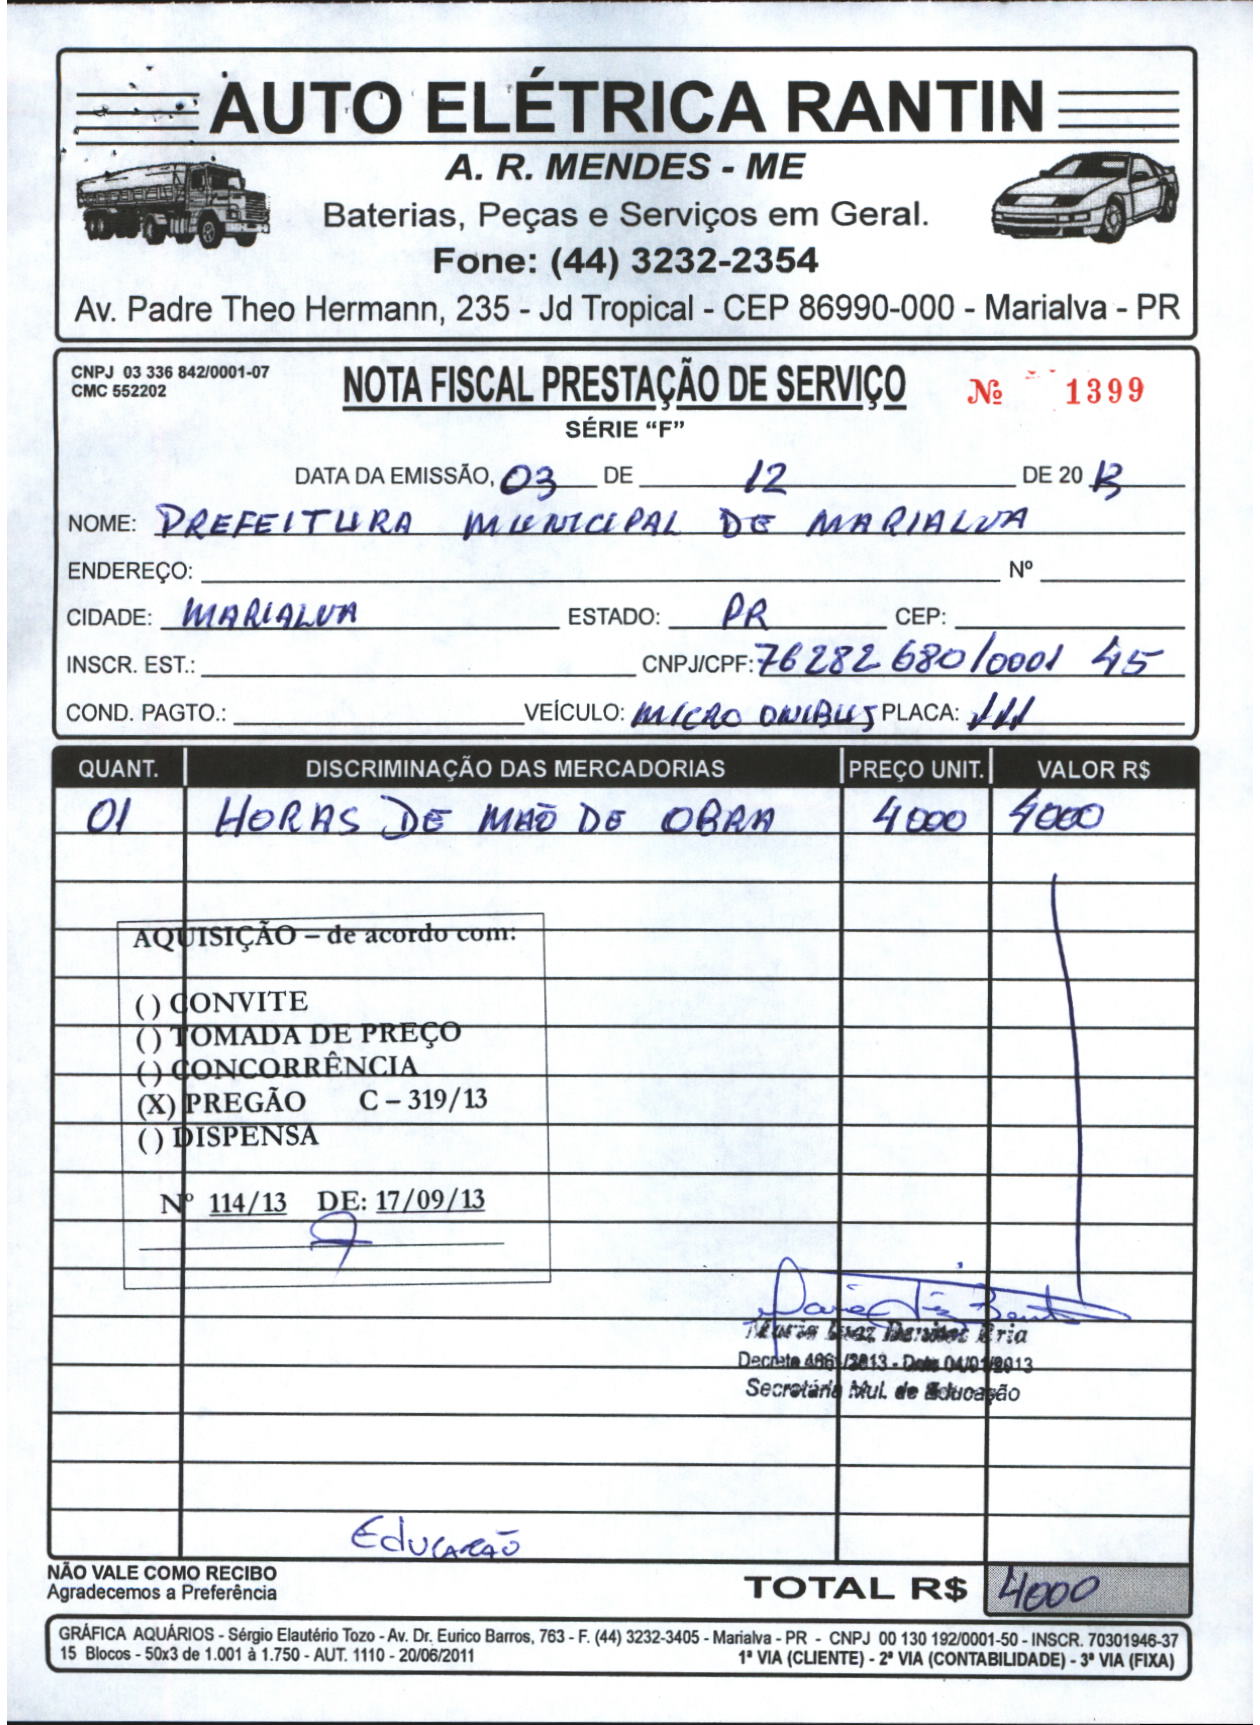 AUTO ELÉTRICA RANTIN
A. R. MENDES - ME
Baterias, Peças e Serviços em Geral.
Fone: (44) 3232-2354
Av. Padre Theo Hermann, 235 - Jd Tropical - CEP 86990-000 - Marialva - PR
CNPJ 03 336 842/0001-07
CMC 552202
NOTA FISCAL PRESTAÇÃO DE SERVIÇO
Nº 1399
SÉRIE "F"
DATA DA EMISSÃO, 03 DE 12 DE 20 13
NOME: PREFEITURA MUNICIPAL DE MARIALVA
ENDEREÇO: Nº
CIDADE: MARIALVA ESTADO: PR CEP:
INSCR. EST.: CNPJ/CPF: 76282680/0001 45
COND. PAGTO.: VEÍCULO: MICRO ONIBUS PLACA: 111
QUANT. DISCRIMINAÇÃO DAS MERCADORIAS PREÇO UNIT. VALOR R$
01 HORAS DE MAO DE OBRA 4000 4000
AQUISIÇÃO – de acordo com:
( ) CONVITE
( ) TOMADA DE PREÇO
( ) CONCORRÊNCIA
(X) PREGÃO C – 319/13
( ) DISPENSA
Nº 114/13 DE: 17/09/13
Maria
Decreto /2013 - Data 04/01/2013
Secretária Mul. de Educação
EDUCAÇÃO
NÃO VALE COMO RECIBO
Agradecemos a Preferência
TOTAL R$ 4000
GRÁFICA AQUÁRIOS - Sérgio Elautério Tozo - Av. Dr. Eurico Barros, 763 - F. (44) 3232-3405 - Marialva - PR - CNPJ 00 130 192/0001-50 - INSCR. 70301946-37
15 Blocos - 50x3 de 1.001 à 1.750 - AUT. 1110 - 20/06/2011 1ª VIA (CLIENTE) - 2ª VIA (CONTABILIDADE) - 3ª VIA (FIXA)